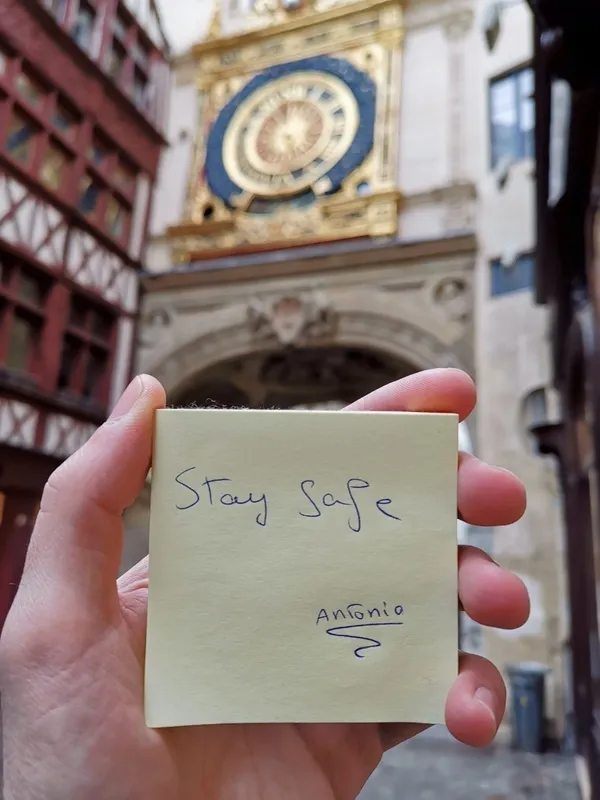 Stay Safe
Antonio